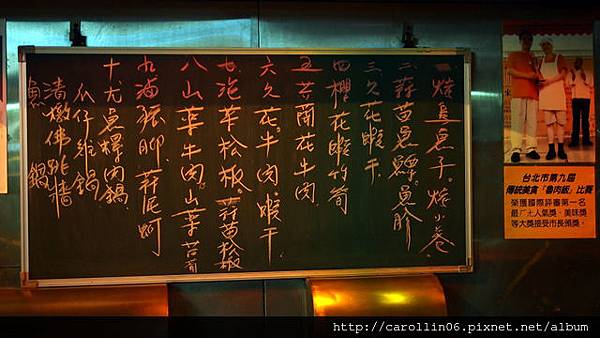 一燒烏魚子。燒小卷。
二蒜苗魚鰾。魚胗
三久花蝦干。
四櫻花蝦竹筍
五苦蘭花牛肉
六久花牛肉。蝦干。
七泡菜松板。蒜苗松板
八山菜牛肉。山菜苦蘭
九滷豚腳。蒜泥蚵
十尤魚螺肉鍋
瓜仔雞鍋
清燉佛跳牆
魚鍋
台北市第九屆
傳統美食「魯肉飯」比賽
榮獲國際評審第一名
最人氣獎、美味獎
等大獎接受市長頒獎。
http://carollin06.pixnet.net/album